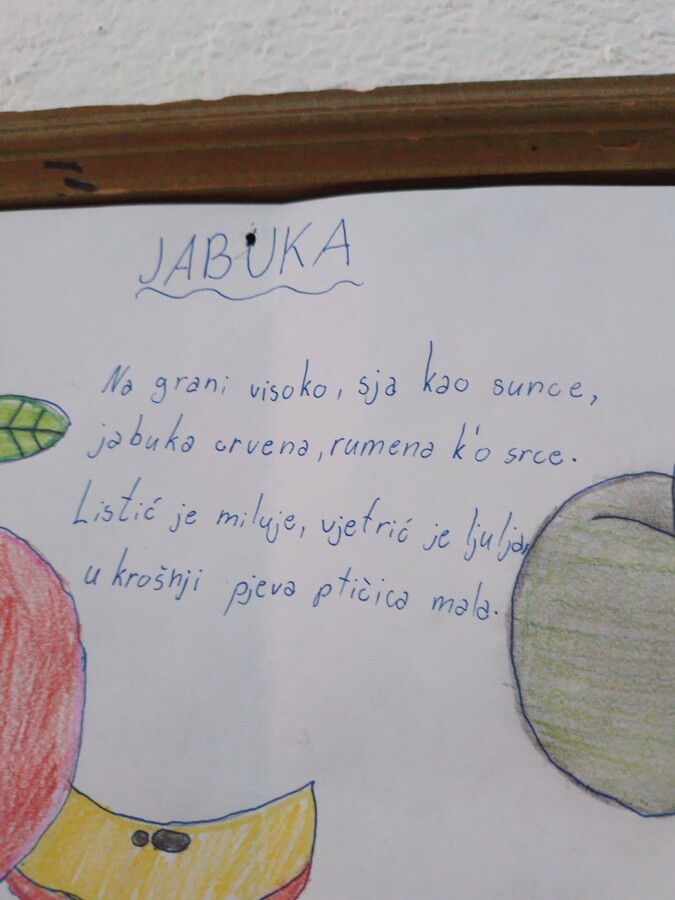 JABUKA
Na grani visoko, sja kao sunce,
jabuka crvena, rumena k'o srce.
Listić je miluje, vjetrić je ljulja,
u krošnji pjeva ptičica mala.